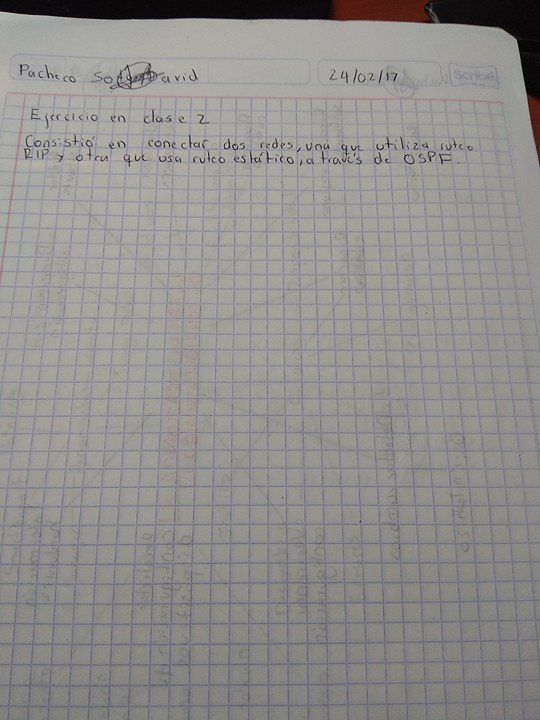 Pacheco So David 24/02/17 scribe
Ejercicio en clase 2
Consistió en conectar dos redes, una que utiliza ruteo
RIP y otra que usa ruteo estático, a través de OSPF.